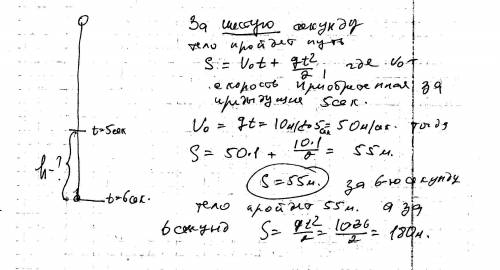 За шестую секунду
тело пройдет путь
S = V₀t + gt²/2, где v₀ -
скорость приобретенная за
предыдущие 5сек.
t=5сек
V₀ = gt = 10м/с·5сек = 50м/сек. тогда
h-?
S = 50·1 + 10·1/2 = 55м.
t=6сек.
S=55м. за 6-ю секунду
тело пройдет 55м. а за
6 секунд S = gt²/2 = 10·36/2 = 180м.